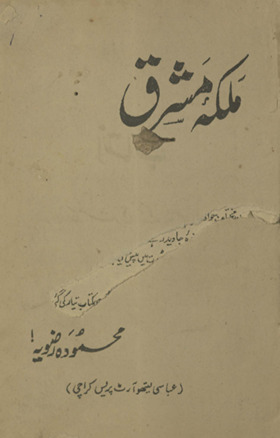 ملکۂ مشرق
جاوید
کتاب تیار کی گئی
محمودہ رضویہ!
(عباسی لیتھو آرٹ پریس کراچی)